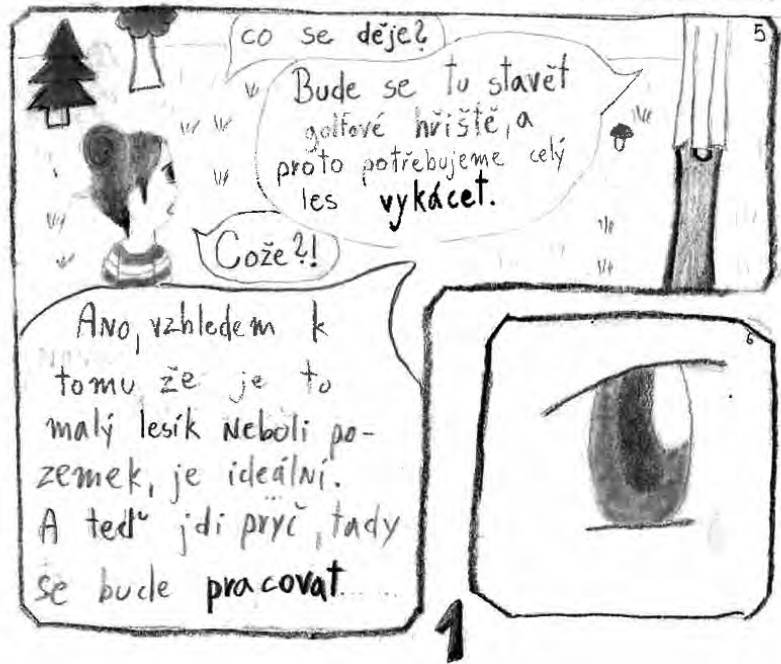 5
co se děje?
Bude se tu stavět
golfové hřiště, a
proto potřebujeme celý
les vykácet.
Cože?!
Ano, vzhledem k
tomu, že je to
malý lesík neboli po-
zemek, je ideální.
A teď jdi pryč, tady
se bude pracovat.....
6
1